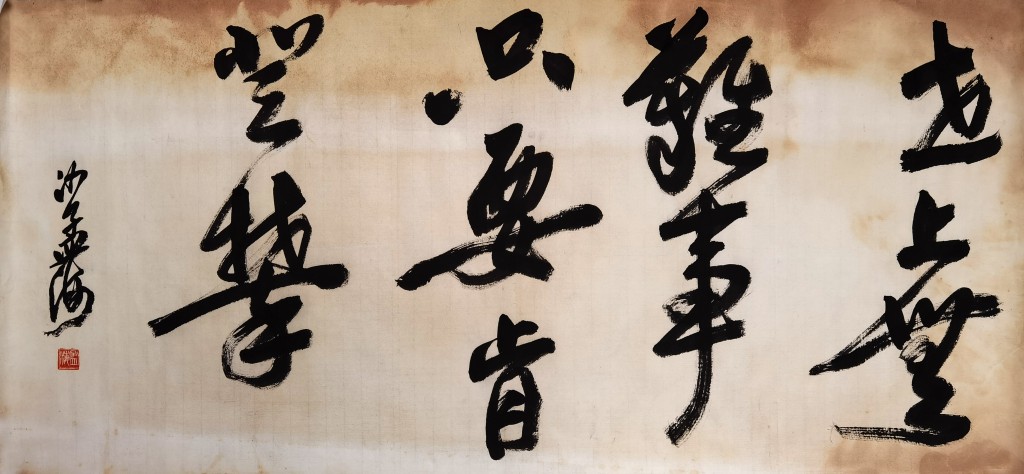 世上無
難事
只要肯
登攀
沙孟海